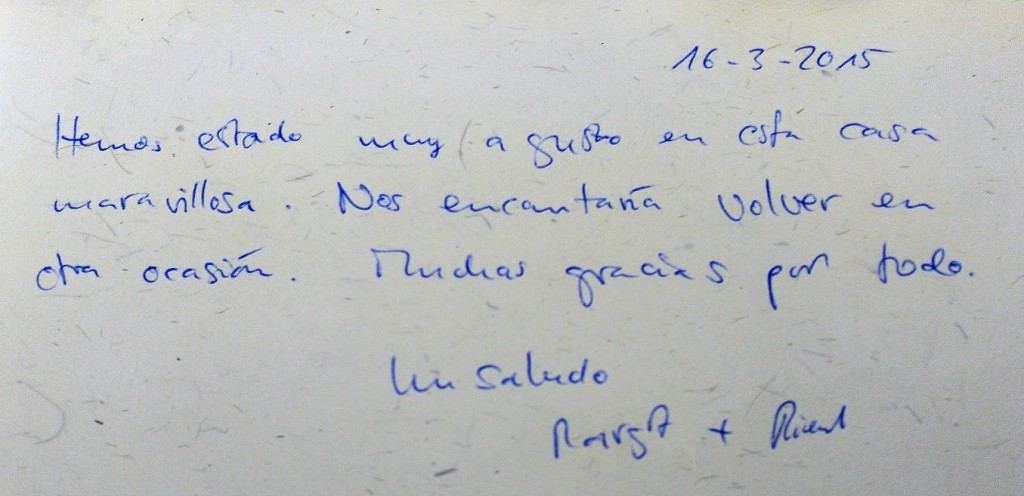 16-3-2015
Hemos estado muy a gusto en esta casa
maravillosa. Nos encantaría volver en
otra ocasión. Muchas gracias por todo.
Un saludo
+